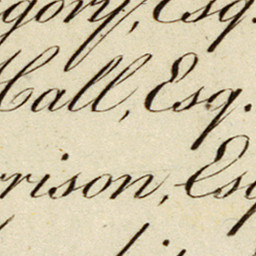 gory, Esq.
Hall, Esq.
rrison, Esq